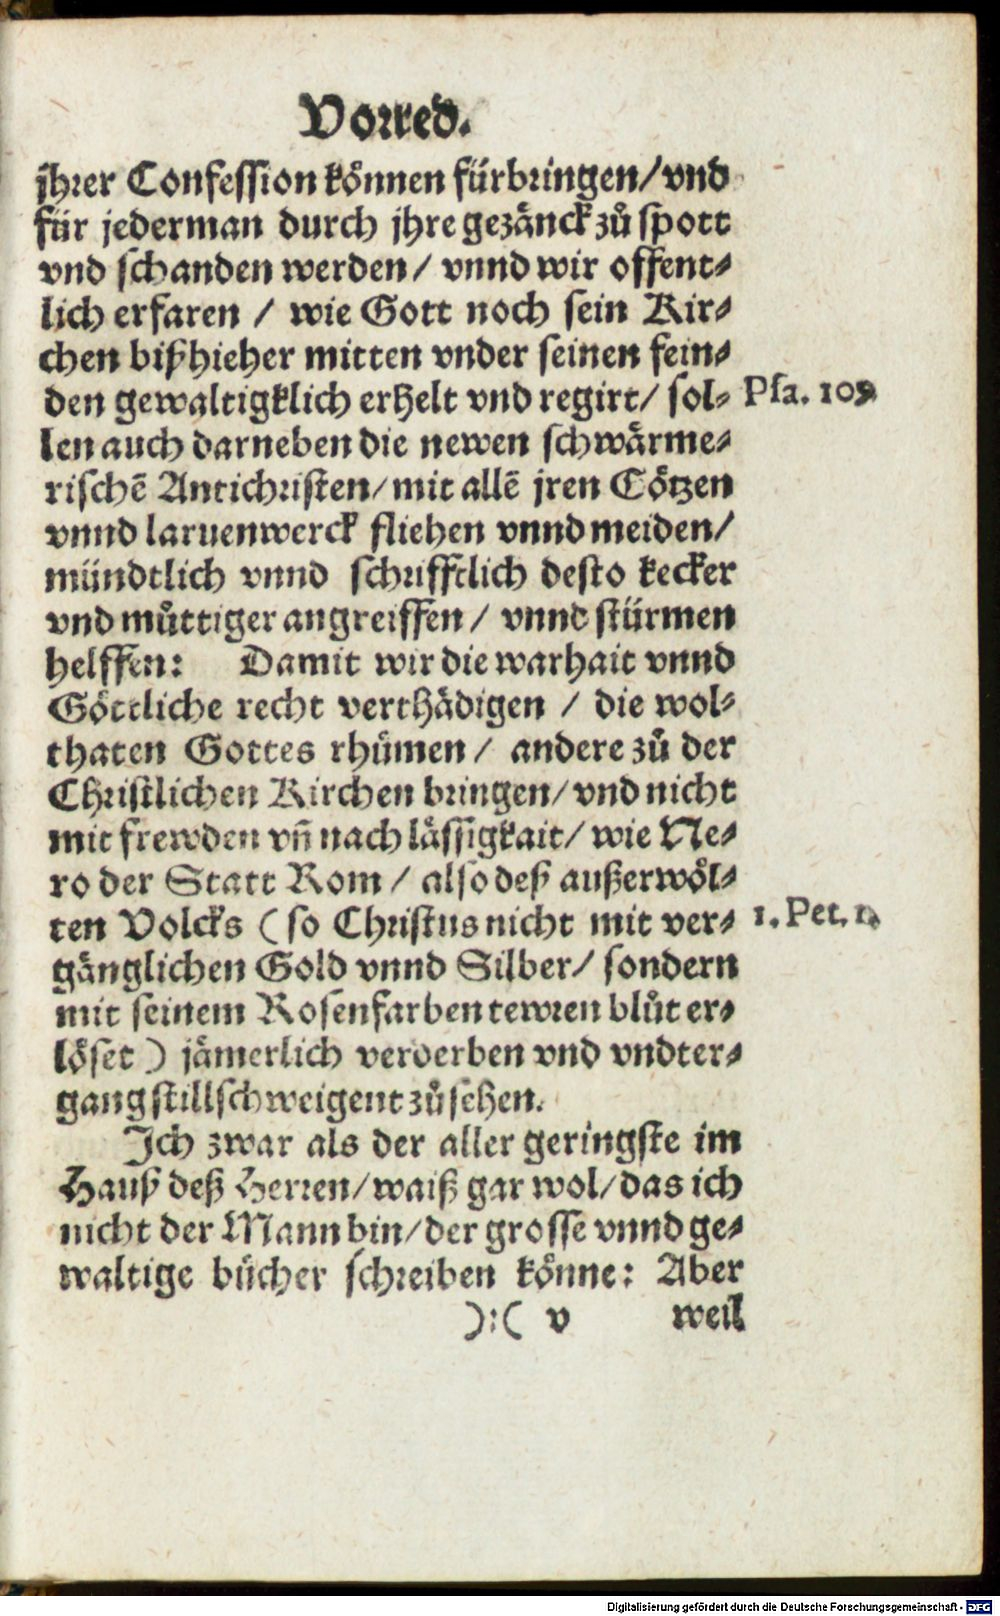 Vorred.
jhrer Confession können fürbringen/ vnd
für jederman durch jhre gezänck zů spott
vnd schanden werden/ vnnd wir offent-
lich erfaren / wie Gott noch sein Kir-
chen biß hieher mitten vnder seinen fein-
den gewaltigklich erhelt vnd regirt/ sol- Psa. 109
len auch darneben die newen schwärme-
rischē Antichristen/ mit allē jren Götzen
vnnd laruenwerck fliehen vnnd meiden/
mündtlich vnnd schrifftlich desto kecker
vnd můttiger angreiffen / vnnd stürmen
helffen: Damit wir die warhait vnnd
Göttliche recht verthädigen / die wol-
thaten Gottes rhümen / andere zů der
Christlichen Kirchen bringen/ vnd nicht
mit frewden vñ nachlässigkait/ wie Ne-
ro der Statt Rom / also deß außerwöl-
ten Volcks (so Christus nicht mit ver- 1. Pet. 1.
gänglichen Gold vnnd Silber/ sondern
mit seinem Rosenfarben tewren blůt er-
löset) jämerlich verderben vnd vndter-
gang stillschweigent zů sehen.
Ich zwar als der aller geringste im
Hauß deß Herren/ waiß gar wol/ das ich
nicht der Mann bin/ der grosse vnnd ge-
waltige bücher schreiben könne: Aber
):( v weil
Digitalisierung gefördert durch die Deutsche Forschungsgemeinschaft - DFG